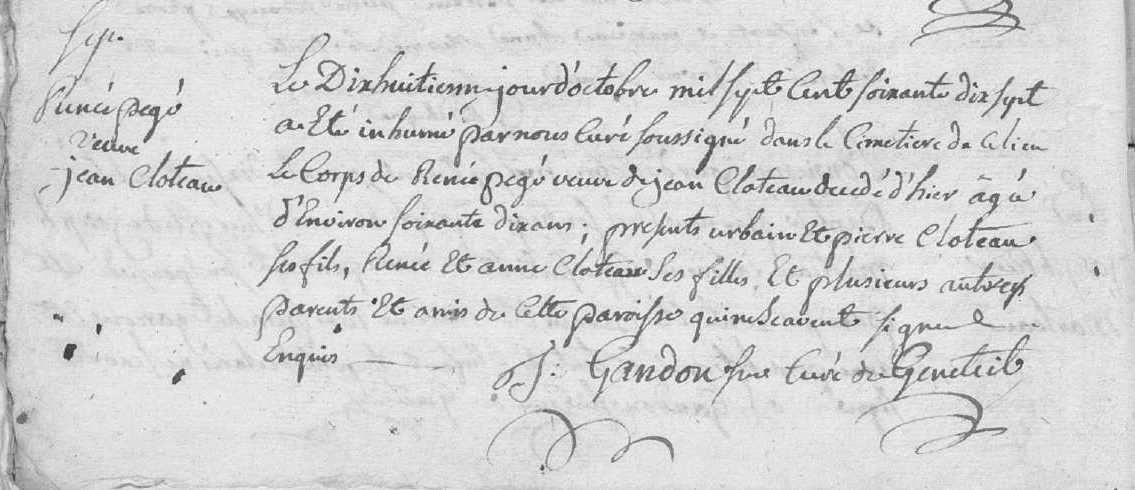 sep.
Renée pegé
veuve
jean Cloteau
Le Dixhuitieme jour d'octobre mil sept Cent soixante dix sept
a Eté inhumé par nous Curé soussigné dans le Cimetiere de ce lieu
Le Corps de Renée pegé veuve de jean Cloteau decedé d'hier âgé
d'Environ soixante dix ans; presents urbain Et pierre Cloteau
ses fils, Renée Et anne Cloteau Ses filles, Et plusieurs autres
parents Et amis de Cette paroisse qui ne Scavent signer
Enquis
J: Gandon Curé de Geneteil